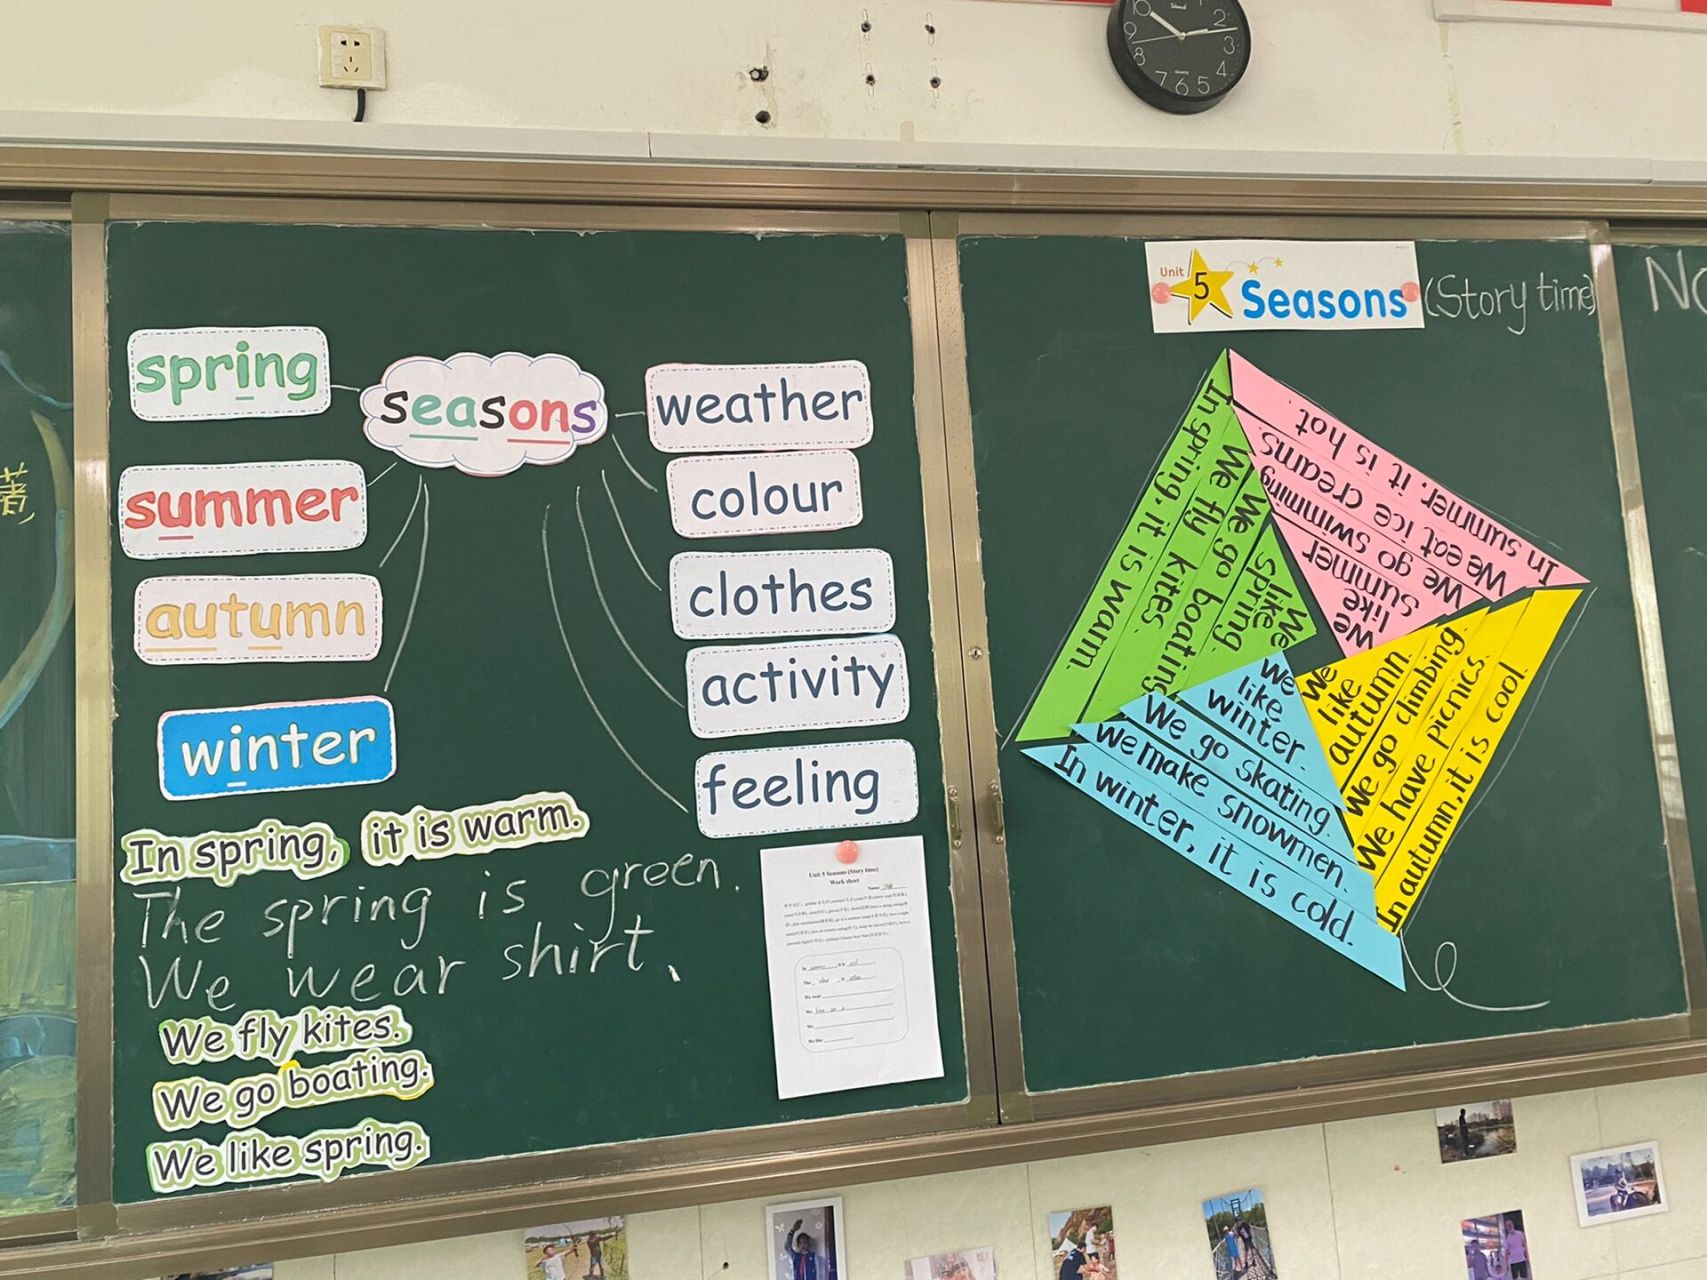 spring
summer
autumn
winter
seasons
weather
colour
clothes
activity
feeling
In spring, it is warm.
The spring is green.
We wear shirt、
We fly kites.
We go boating.
We like spring.
Unit 5 Seasons (Story time)
Work sheet
Name:
We wear
We
We
We like
Unit 5 Seasons (Story time)
In spring, it is warm.
We fly kites.
We go boating
We like spring.
In summer, it is hot.
We eat ice creams.
We go swimming
We like summer
We like autumn.
We go climbing
We have picnics.
In autumn, it is cool.
We like winter.
We go skating.
We make snowmen.
In winter, it is cold.
10 2
9 3
8 4
7 6 5